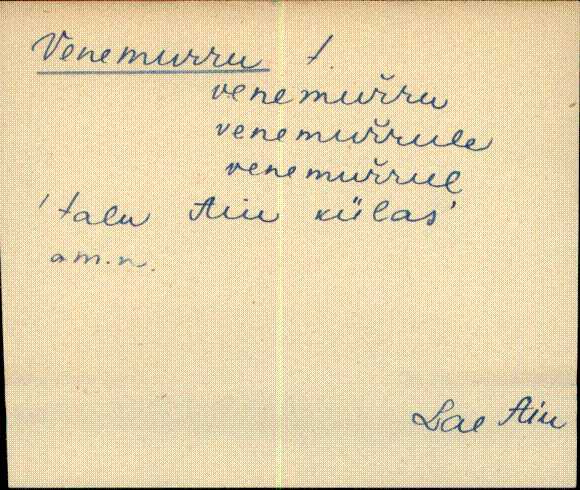 Venemurru t.
venemuřru
venemuřrule
venemuřrul
'talu Aiu külas'
am.n.
Lae Aiu